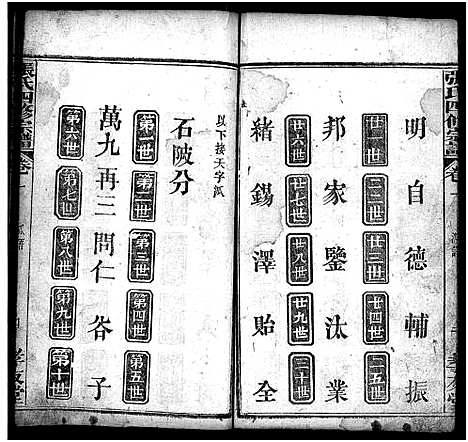 張氏四修宗譜 卷一
明自德輔振
廿一世 廿二世 廿三世 廿四世 廿五世
邦家鑒汰業
廿六世 廿七世 廿八世 廿九世 三十世
緒錫澤貽全
以下接天字派
石陂分
第一世 第二世 第三世 第四世 第五世
萬九再三問仁峇子
第六世 第七世 第八世 第九世 第十世
張氏四修宗譜 卷一 孝友堂